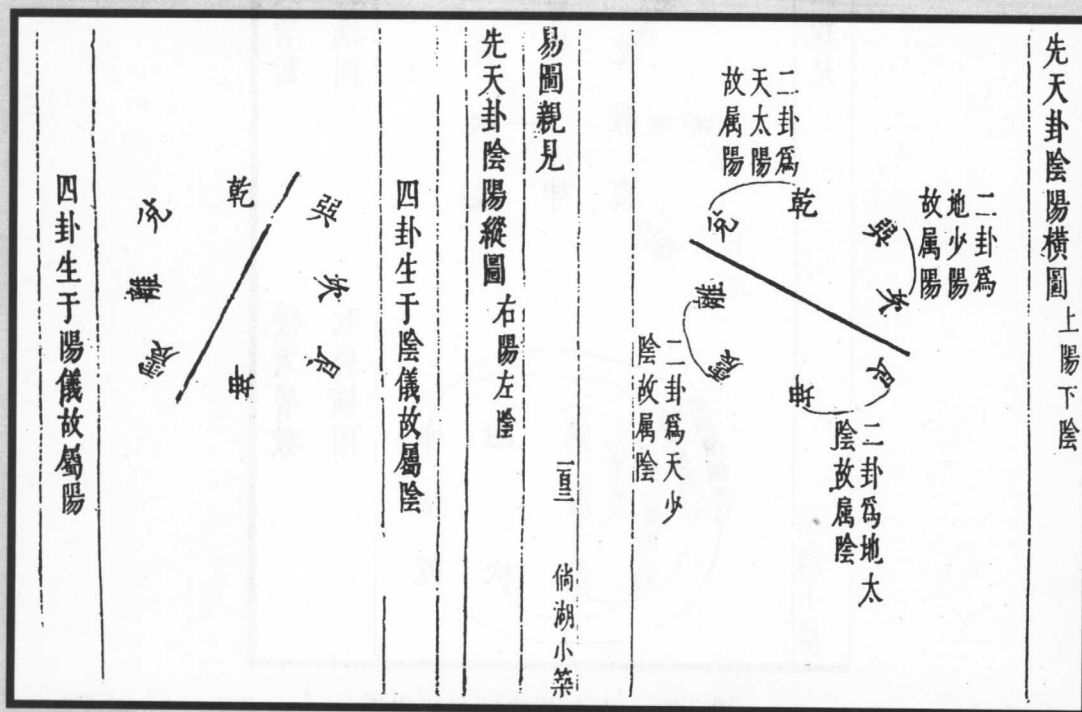 先天卦陰陽橫圖 上陽下陰
二卦爲
地少陽
故属陽
二卦爲
天太陽
故属陽
乾
兌
巽
坎
離
震
艮
坤
二卦爲地太
陰故属陰
二卦爲天少
陰故属陰
易圖親見 倘湖小築
先天卦陰陽縱圖 右陽左陰
四卦生于陰儀故屬陰
巽
坎
艮
乾
坤
兌
離
震
四卦生于陽儀故屬陽